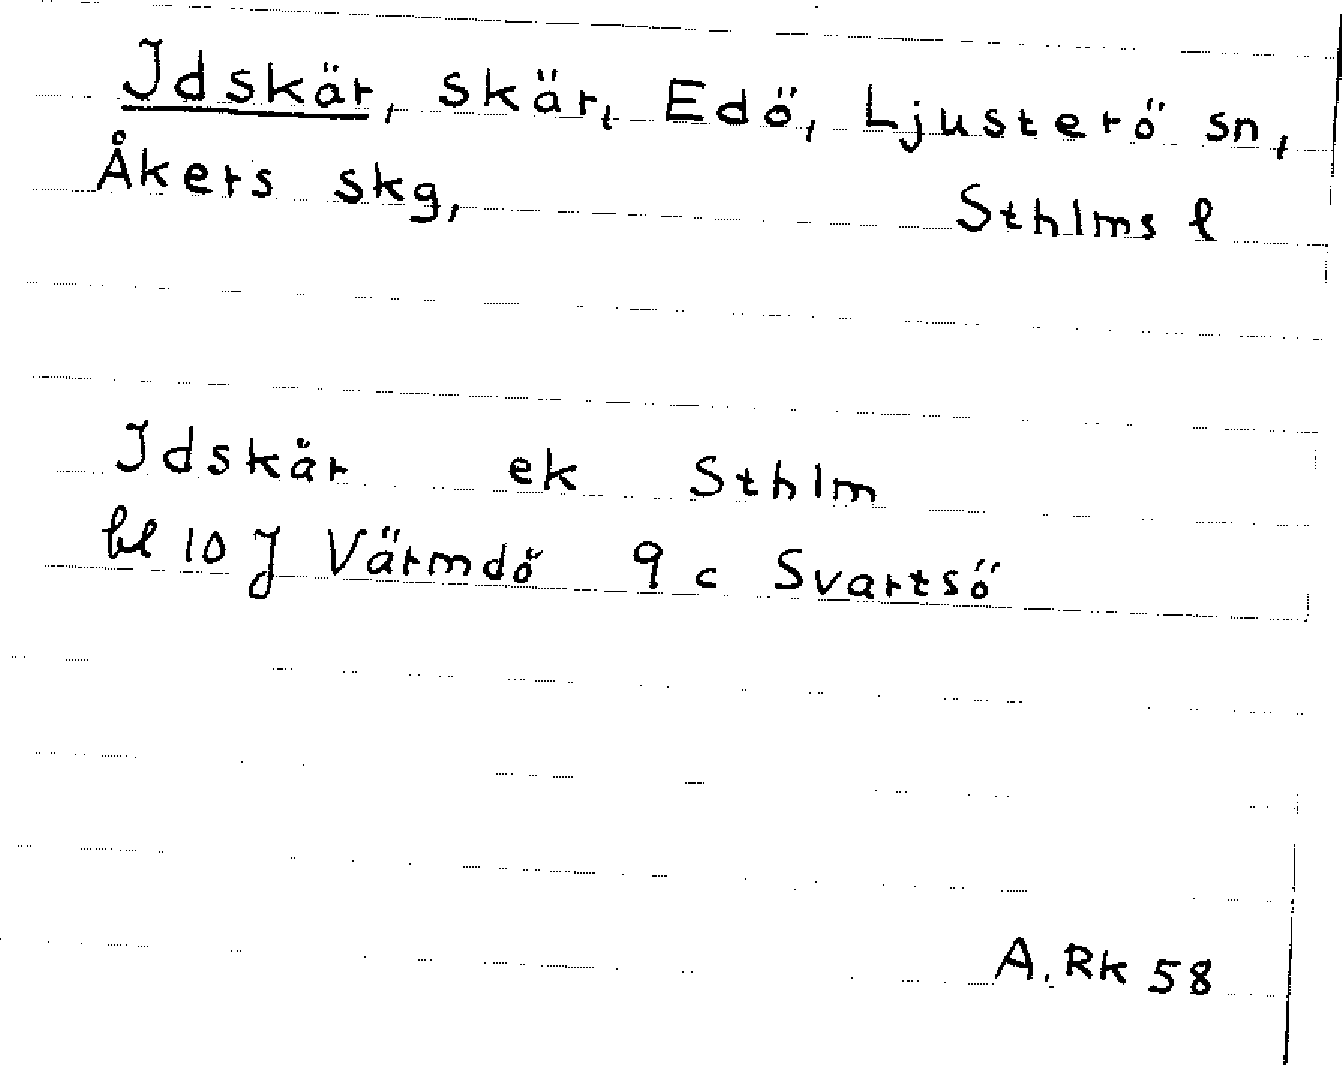 Idskär, skär, Edö, Ljusterö sn,
Åkers skg, Sthlms l
Idskär ek Sthlm
bl 10 J Värmdö 9 c Svartsö
A. Rk 58